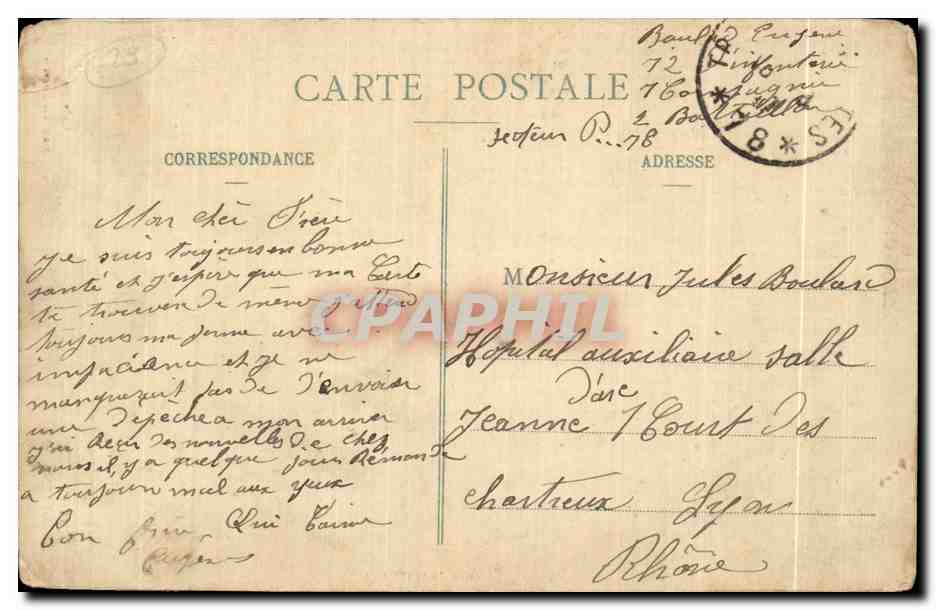 CARTE POSTALE
Boulard Eugène
72 d'infanterie
7 Compagnie
2 Bataillon
secteur P... 78
CORRESPONDANCE
Mon cher Frère
je suis toujours en bonne
santé et j'espère que ma Carte
te trouvera de même j'attend
toujours ma perme avec
impacience et je ne
manquerait pas de t'envoier
une depèche a mon arriver
j'ai Reçu des nouvelles de chez
nous il y a quelque jour Rémonde
a toujour mal aux yeux
Ton frère Qui t'aime
Eugène
ADRESSE
Monsieur Jules Boulard
Hopital auxiliaire salle
Jeanne d'arc 1 Court des
chartreux Lyon
Rhône
CPAPHIL
29